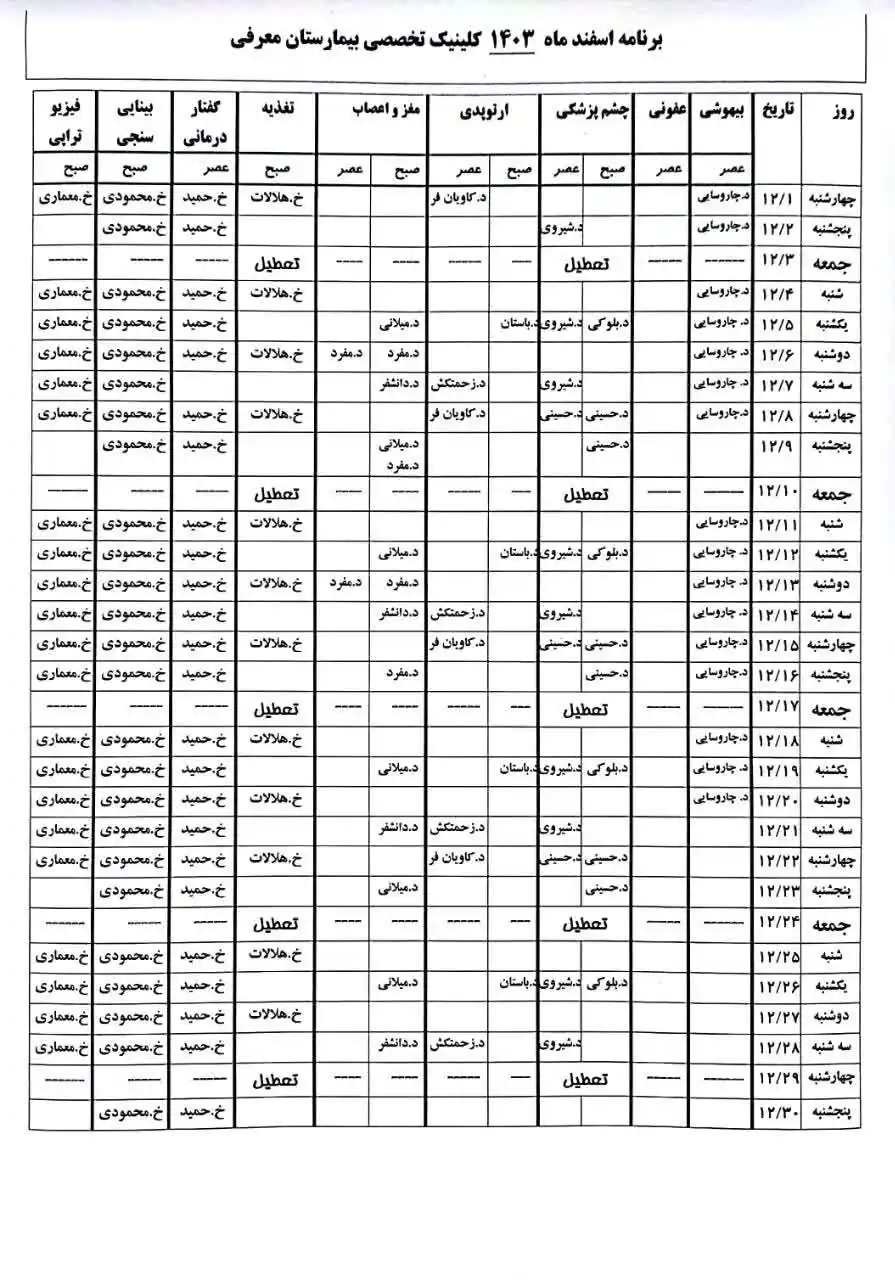 برنامه اسفند ماه ۱۴۰۳ کلینیک تخصصی بیمارستان معرفی
روز تاریخ بیهوشی عفونی چشم پزشکی ارتوپدی مغز و اعصاب تغذیه گفتار درمانی بینایی سنجی فیزیو تراپی
عصر عصر صبح عصر صبح عصر صبح عصر صبح عصر صبح صبح
چهارشنبه ۱۲/۱ د.چاروسایی د.کاویان فر خ.هلالات خ.حمید خ.محمودی خ.معماری
پنجشنبه ۱۲/۲ د.چاروسایی د.شیروی خ.حمید خ.محمودی
جمعه ۱۲/۳ ------ ----- تعطیل --- ----- ---- ---- تعطیل ----- ----- ------
شنبه ۱۲/۴ د.چاروسایی خ.هلالات خ.حمید خ.محمودی خ.معماری
یکشنبه ۱۲/۵ د.چاروسایی د.بلوکی د.شیروی د.باستان د.میلانی خ.حمید خ.محمودی خ.معماری
دوشنبه ۱۲/۶ د.چاروسایی د.مفرد د.مفرد خ.هلالات خ.حمید خ.محمودی خ.معماری
سه شنبه ۱۲/۷ د.چاروسایی د.شیروی د.زحمتکش د.دانشفر خ.محمودی خ.معماری
چهارشنبه ۱۲/۸ د.چاروسایی د.حسینی د.حسینی د.کاویان فر خ.هلالات خ.حمید خ.محمودی خ.معماری
پنجشنبه ۱۲/۹ د.حسینی د.میلانی خ.حمید خ.محمودی
د.مفرد
جمعه ۱۲/۱۰ ------ ----- تعطیل --- ----- ---- ---- تعطیل ----- ----- ------
شنبه ۱۲/۱۱ د.چاروسایی خ.هلالات خ.حمید خ.محمودی خ.معماری
یکشنبه ۱۲/۱۲ د.چاروسایی د.بلوکی د.شیروی د.باستان د.میلانی خ.حمید خ.محمودی خ.معماری
دوشنبه ۱۲/۱۳ د.چاروسایی د.مفرد د.مفرد خ.هلالات خ.حمید خ.محمودی خ.معماری
سه شنبه ۱۲/۱۴ د.چاروسایی د.شیروی د.زحمتکش د.دانشفر خ.حمید خ.محمودی خ.معماری
چهارشنبه ۱۲/۱۵ د.چاروسایی د.حسینی د.حسینی د.کاویان فر خ.هلالات خ.حمید خ.محمودی خ.معماری
پنجشنبه ۱۲/۱۶ د.چاروسایی د.حسینی د.مفرد خ.حمید خ.محمودی خ.معماری
جمعه ۱۲/۱۷ ------ ----- تعطیل --- ----- ---- ---- تعطیل ----- ----- ------
شنبه ۱۲/۱۸ د.چاروسایی خ.هلالات خ.حمید خ.محمودی خ.معماری
یکشنبه ۱۲/۱۹ د.چاروسایی د.بلوکی د.شیروی د.باستان د.میلانی خ.حمید خ.محمودی خ.معماری
دوشنبه ۱۲/۲۰ د.چاروسایی خ.هلالات خ.حمید خ.محمودی خ.معماری
سه شنبه ۱۲/۲۱ د.شیروی د.زحمتکش د.دانشفر خ.حمید خ.محمودی خ.معماری
چهارشنبه ۱۲/۲۲ د.حسینی د.حسینی د.کاویان فر خ.هلالات خ.حمید خ.محمودی خ.معماری
پنجشنبه ۱۲/۲۳ د.حسینی د.میلانی خ.حمید خ.محمودی
جمعه ۱۲/۲۴ ------ ----- تعطیل --- ----- ---- ---- تعطیل ----- ----- ------
شنبه ۱۲/۲۵ خ.هلالات خ.حمید خ.محمودی خ.معماری
یکشنبه ۱۲/۲۶ د.بلوکی د.شیروی د.باستان د.میلانی خ.حمید خ.محمودی خ.معماری
دوشنبه ۱۲/۲۷ خ.هلالات خ.حمید خ.محمودی خ.معماری
سه شنبه ۱۲/۲۸ د.شیروی د.زحمتکش د.دانشفر خ.حمید خ.محمودی خ.معماری
چهارشنبه ۱۲/۲۹ ------ ----- تعطیل --- ----- ---- ---- تعطیل ----- ----- ------
پنجشنبه ۱۲/۳۰ خ.حمید خ.محمودی